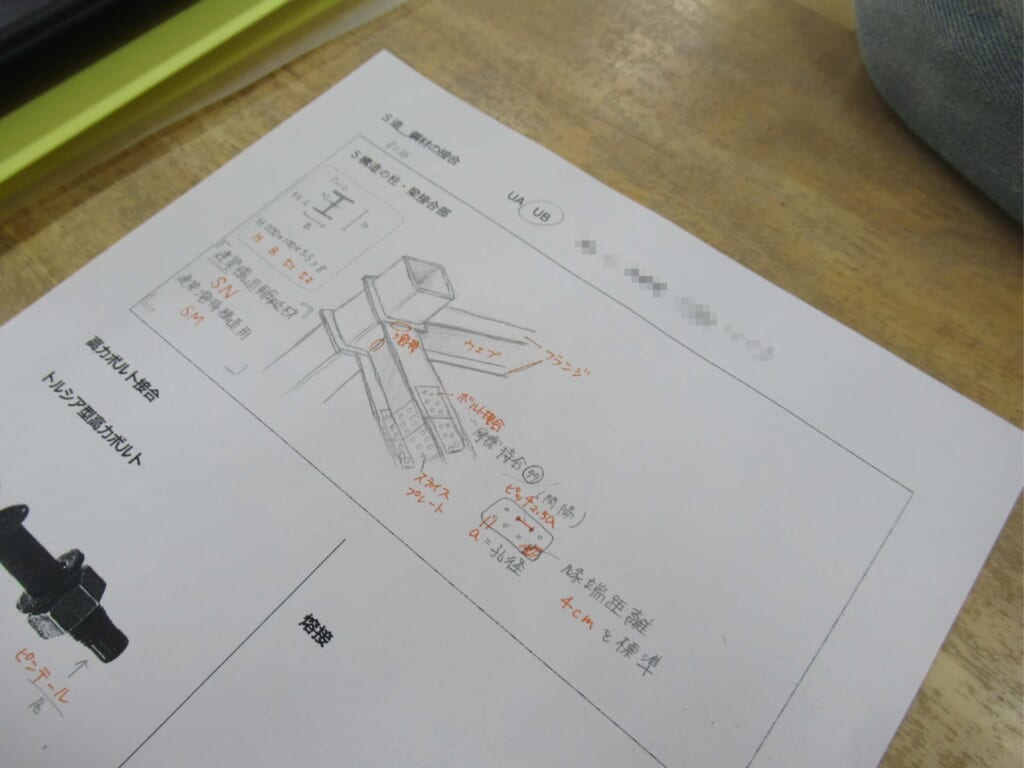 S造_鋼材の接合
UA UB
S構造の柱・梁接合部
H-200×100×5.5×8
H B t1 t2
建築構造用圧延鋼材
SN
SM
ウェブ
フランジ
ボルト接合
摩擦接合
スプライス
プレート
ピッチ2.5a
(間隔)
a=孔径
縁端距離
4cmを標準
高力ボルト接合
トルシア型高力ボルト
ピンテール
尾
熔接